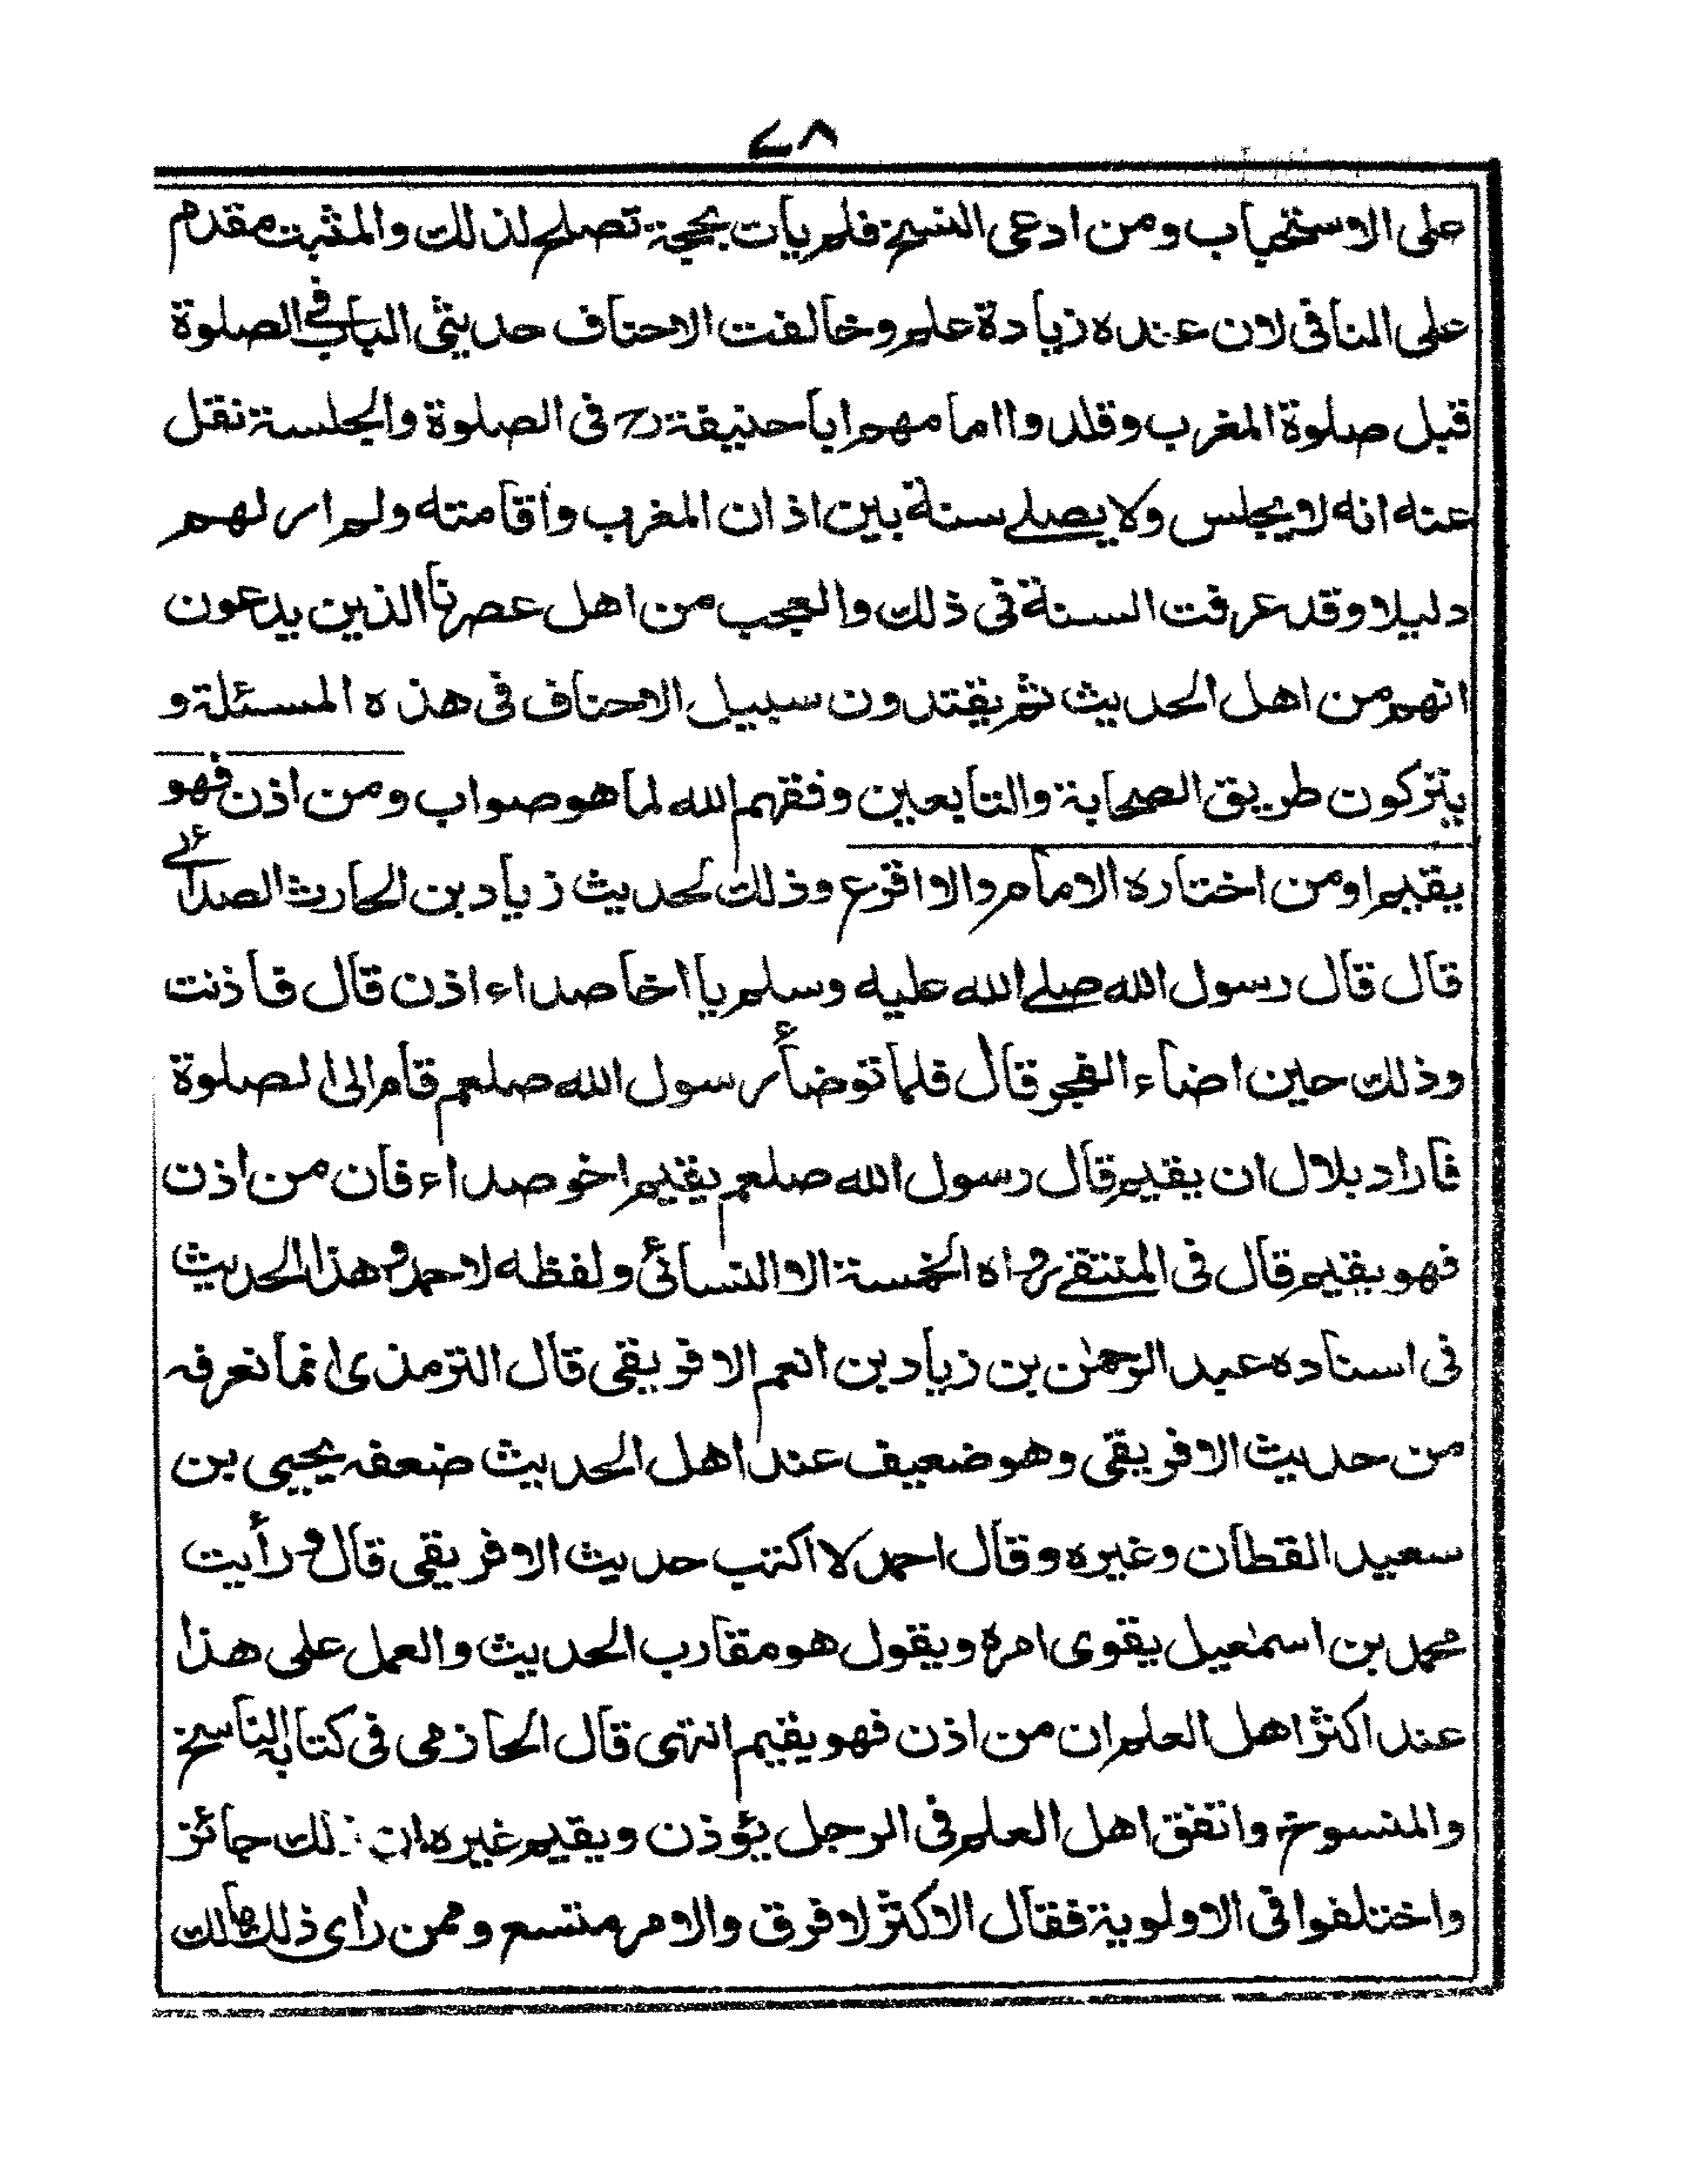 ٧٨
على الاستحباب ومن ادعى النسخ فلم يات بحجة تصلح لذلك والمثبت مقدم
على المنافى لان عنده زيادة علم وخالفت الاحناف حديثى الباب فى الصلوة
قبل صلوة المغرب وقلدوا امامهم ابا حنيفةؒ فى الصلوة والجلسة نقل
عنه انه لا يجلس ولا يصلے سنة بين اذان المغرب واقامته ولم ار لهم
دليلا وقد عرفت السنة فى ذلك والعجب من اهل عصرنا الذين يدعون
انهم من اهل الحديث ثم يقتدون سبيل الاحناف فى هذه المسئلة و
يتركون طريق الصحابة والتابعين وفقهم الله لما هو صواب ومن اذن فهو
يقيم او من اختاره الامام والا اقرع وذلك لحديث زياد بن الحارث الصدائے
قال قال رسول الله صلے الله عليه وسلم يا اخا صداء اذن قال فاذنت
وذلك حين اضاء الفجر قال فلما توضأ رسول الله صلعم قام الى الصلوة
فاراد بلال ان يقيم قال رسول الله صلعم يقيم اخو صداء فان من اذن
فهو يقيم قال فى المنتقے رواه الخمسة الا النسائى ولفظه لاحمد وهذا الحديث
فى اسناده عبد الرحمٰن بن زياد بن انعم الافريقى قال الترمذى انما نعرفه
من حديث الافريقى وهو ضعيف عند اهل الحديث ضعفه يحيى بن
سعيد القطان وغيره وقال احمد لا اكتب حديث الافريقى قال ورأيت
محمد بن اسمٰعيل يقوى امره ويقول هو مقارب الحديث والعمل على هذا
عند اكثر اهل العلم ان من اذن فهو يقيم انتهى قال الحازمى فى كتابه الناسخ
والمنسوخ واتفق اهل العلم فى الرجل يؤذن ويقيم غيره ان ذلك جائز
واختلفوا فى الاولوية فقال الاكثر لا فرق والامر متسع وممن راى ذلك مالك